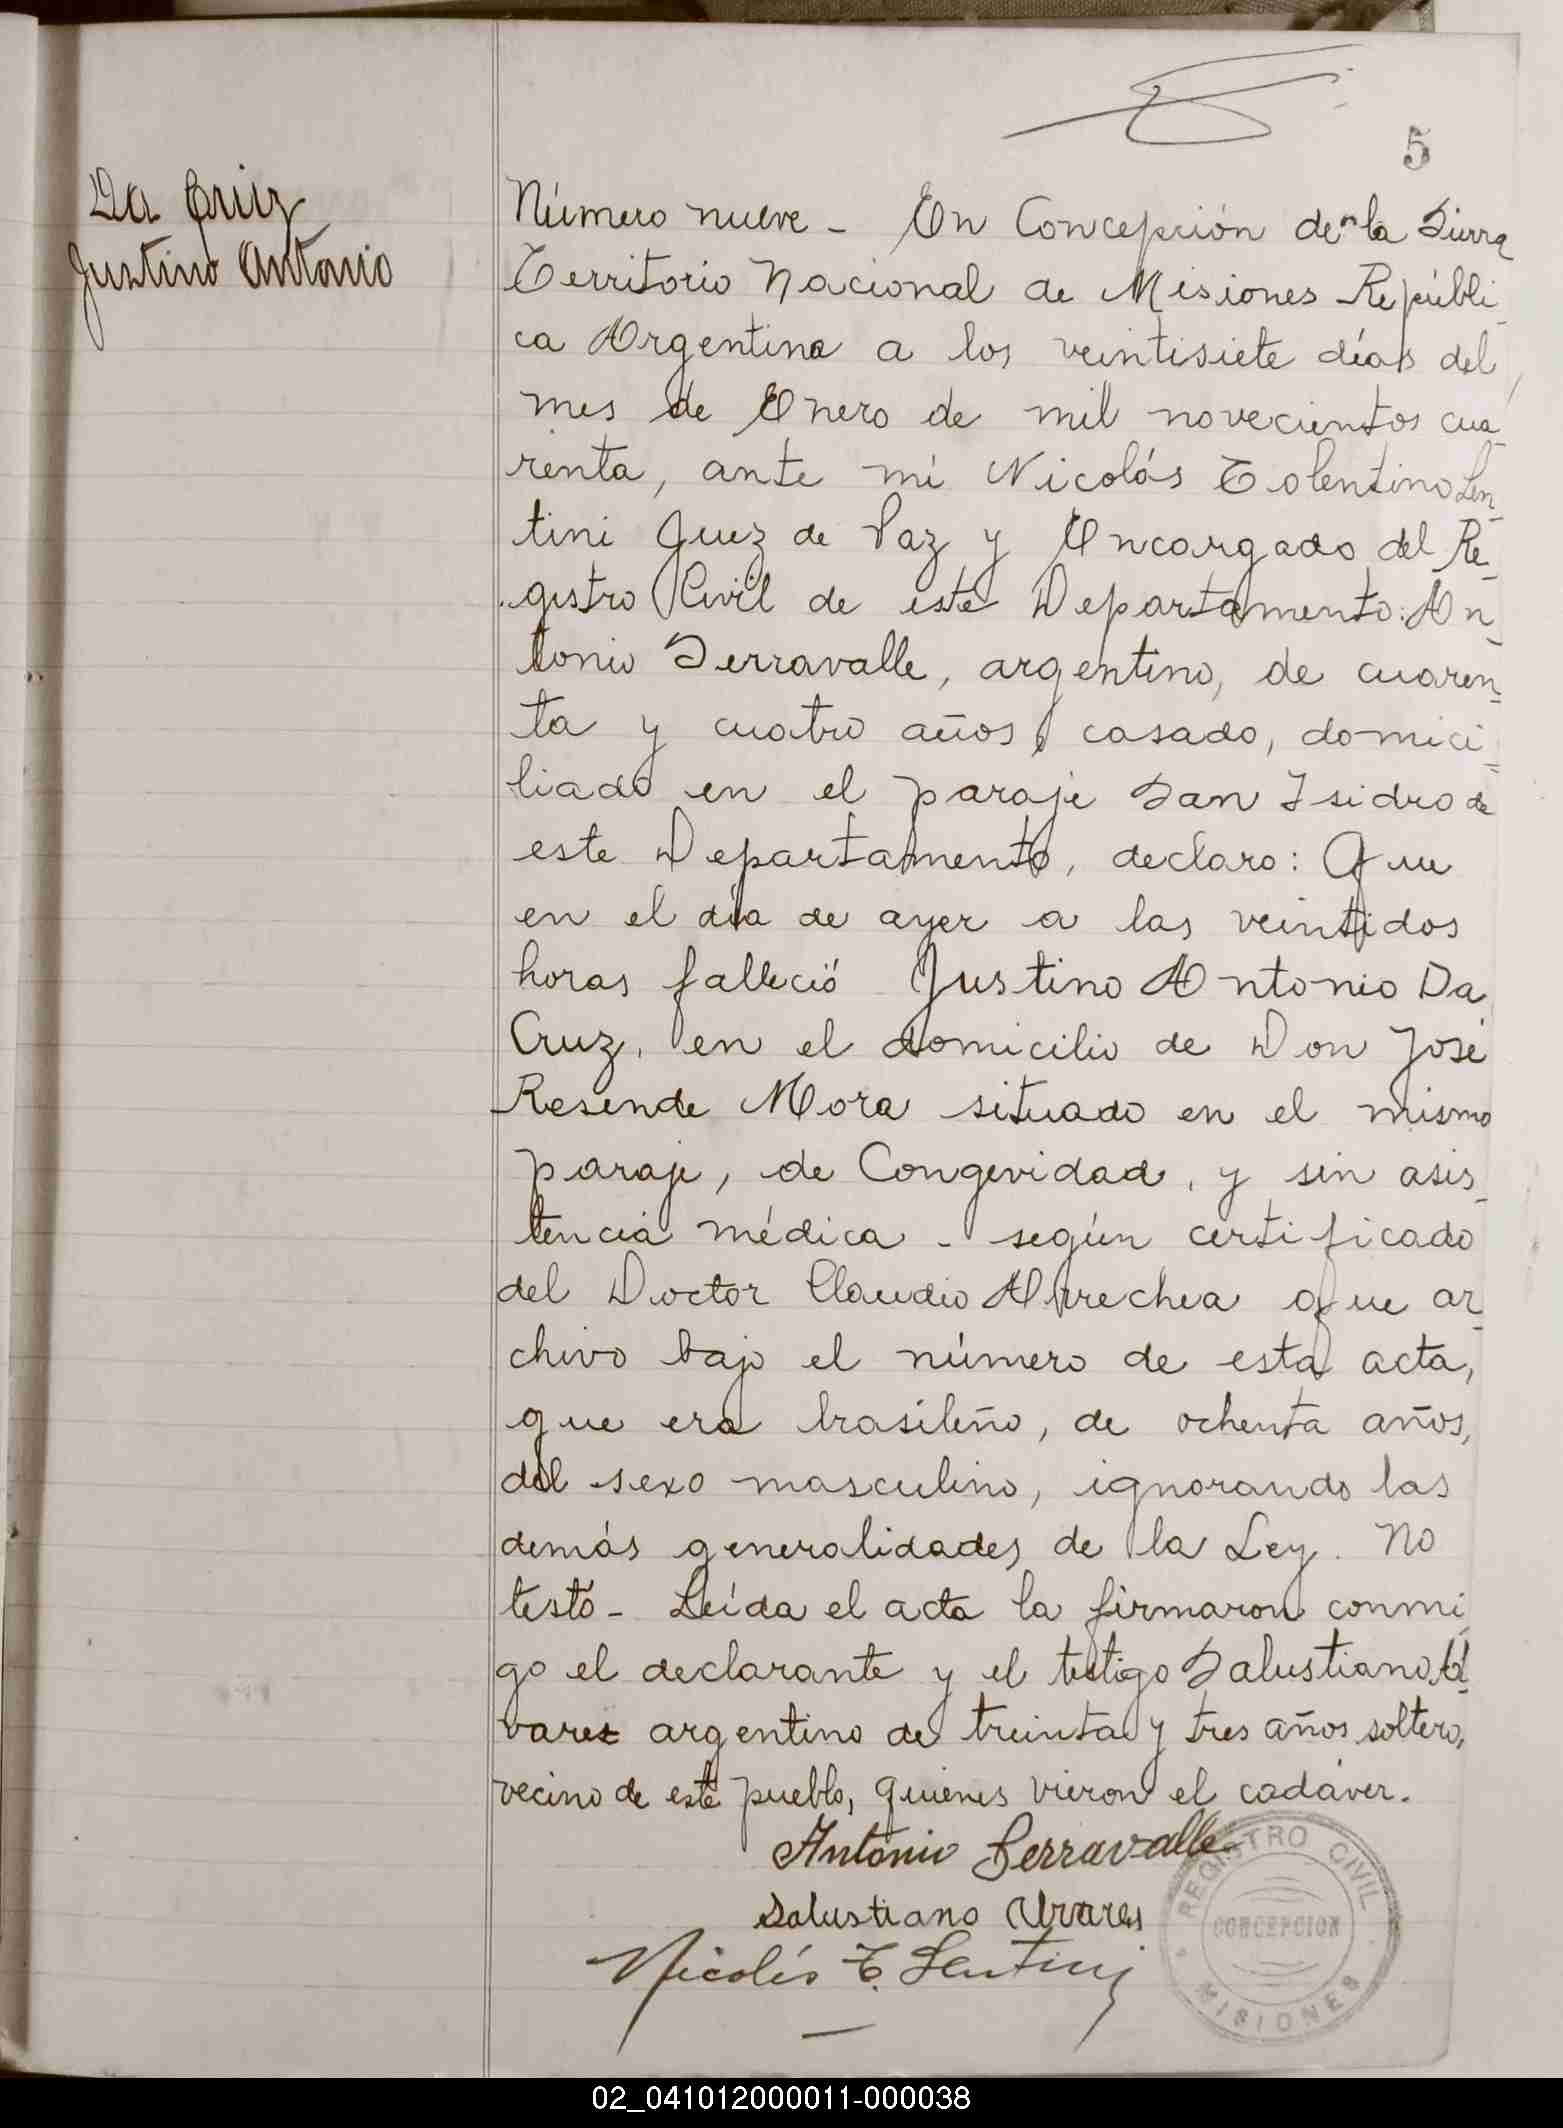 5
Da Cruz
Justino Antonio
Número nueve - En Concepción de la Sierra
Territorio Nacional de Misiones Repúbli-
ca Argentina a los veintisiete días del
mes de Enero de mil novecientos cua-
renta, ante mi Nicolás Tolentino Len-
tini Juez de Paz y Encargado del Re-
gistro Civil de este Departamento: An-
tonio Serravalle, argentino, de cuaren-
ta y cuatro años, casado, domici-
liado en el paraje San Isidro de
este Departamento, declaro: Que
en el día de ayer a las veintidos
horas falleció Justino Antonio Da
Cruz, en el domicilio de Don José
Resende Mora situado en el mismo
paraje, de Longevidad, y sin asis-
tencia médica - según certificado
del Doctor Claudio Arrechea que ar-
chivo bajo el número de esta acta,
que era brasileño, de ochenta años,
del sexo masculino, ignorando las
demás generalidades de la Ley. No
testó - Leída el acta la firmaron conmi-
go el declarante y el testigo Salustiano Al-
varez argentino de treinta y tres años soltero,
vecino de este pueblo, quienes vieron el cadáver.
Antonio Serravalle
Salustiano Alvares
Nicolás T. Lentini
REGISTRO CIVIL
CONCEPCION
MISIONES
02_041012000011-000038